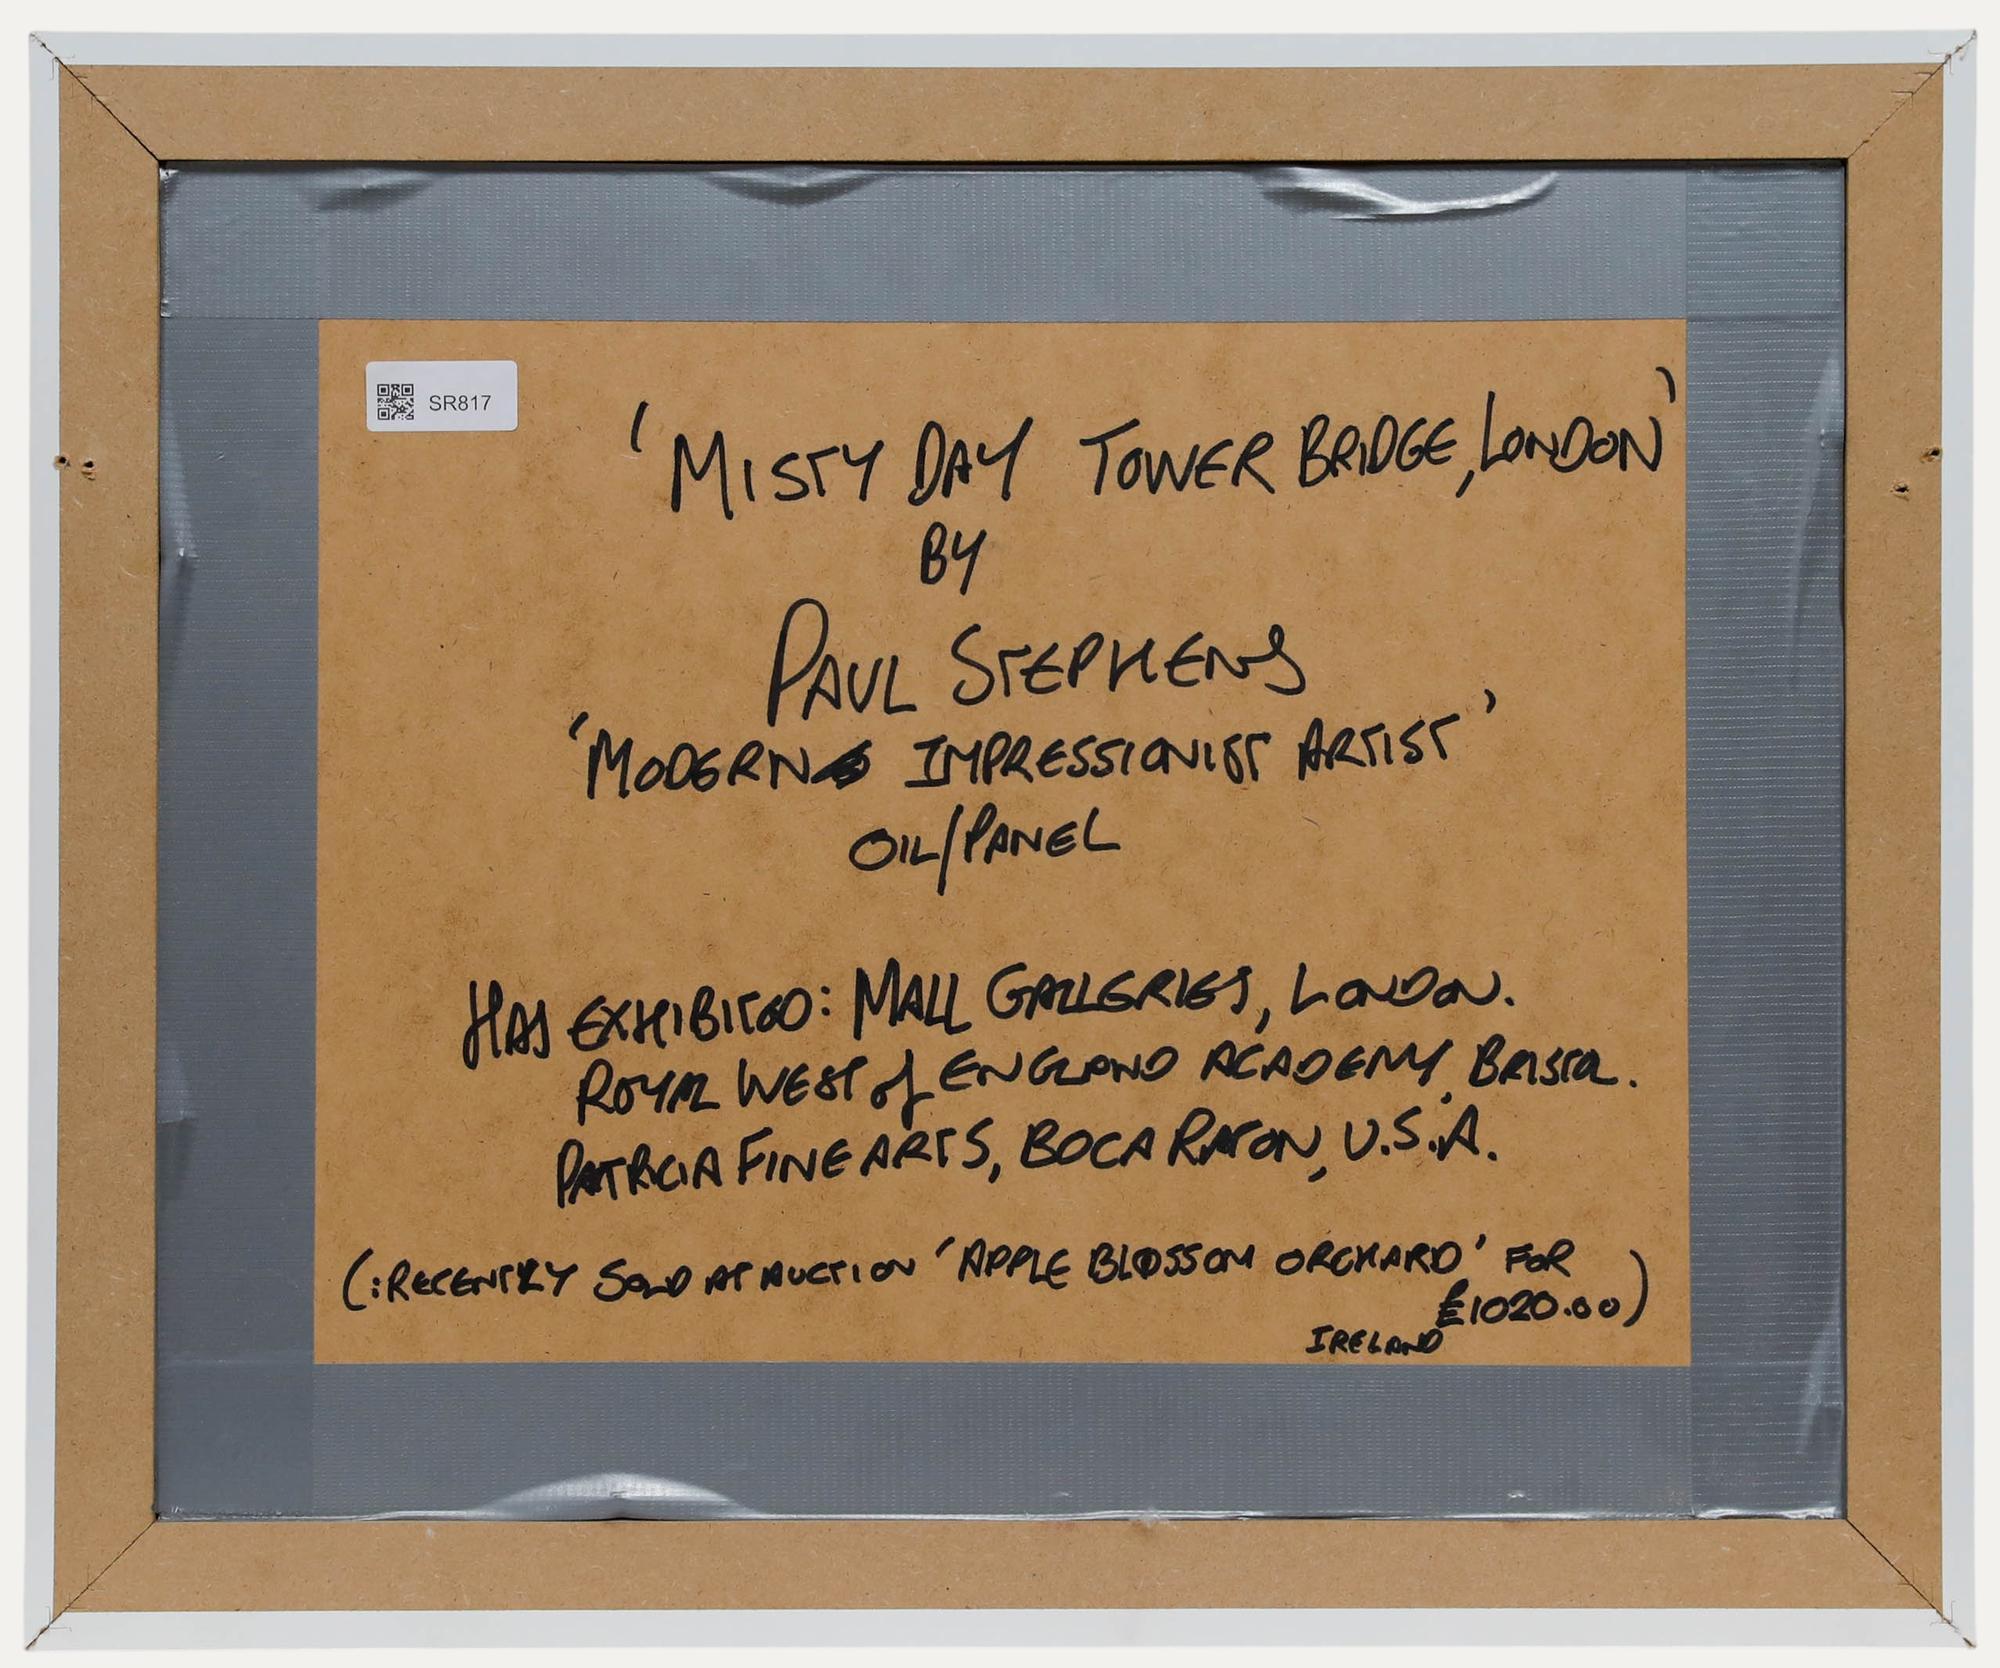 SR817
'MISTY DAY TOWER BRIDGE, LONDON'
BY
PAUL STEPHENS
'MODERN IMPRESSIONIST ARTIST'
OIL/PANEL
HAS EXHIBITED: MALL GALLERIES, LONDON.
ROYAL WEST of ENGLAND ACADEMY, BRISTOL.
PATRICIA FINE ARTS, BOCA RATON, U.S.A.
(:RECENTLY SOLD AT AUCTION 'APPLE BLOSSOM ORCHARD' FOR
£1020.00)
IRELAND